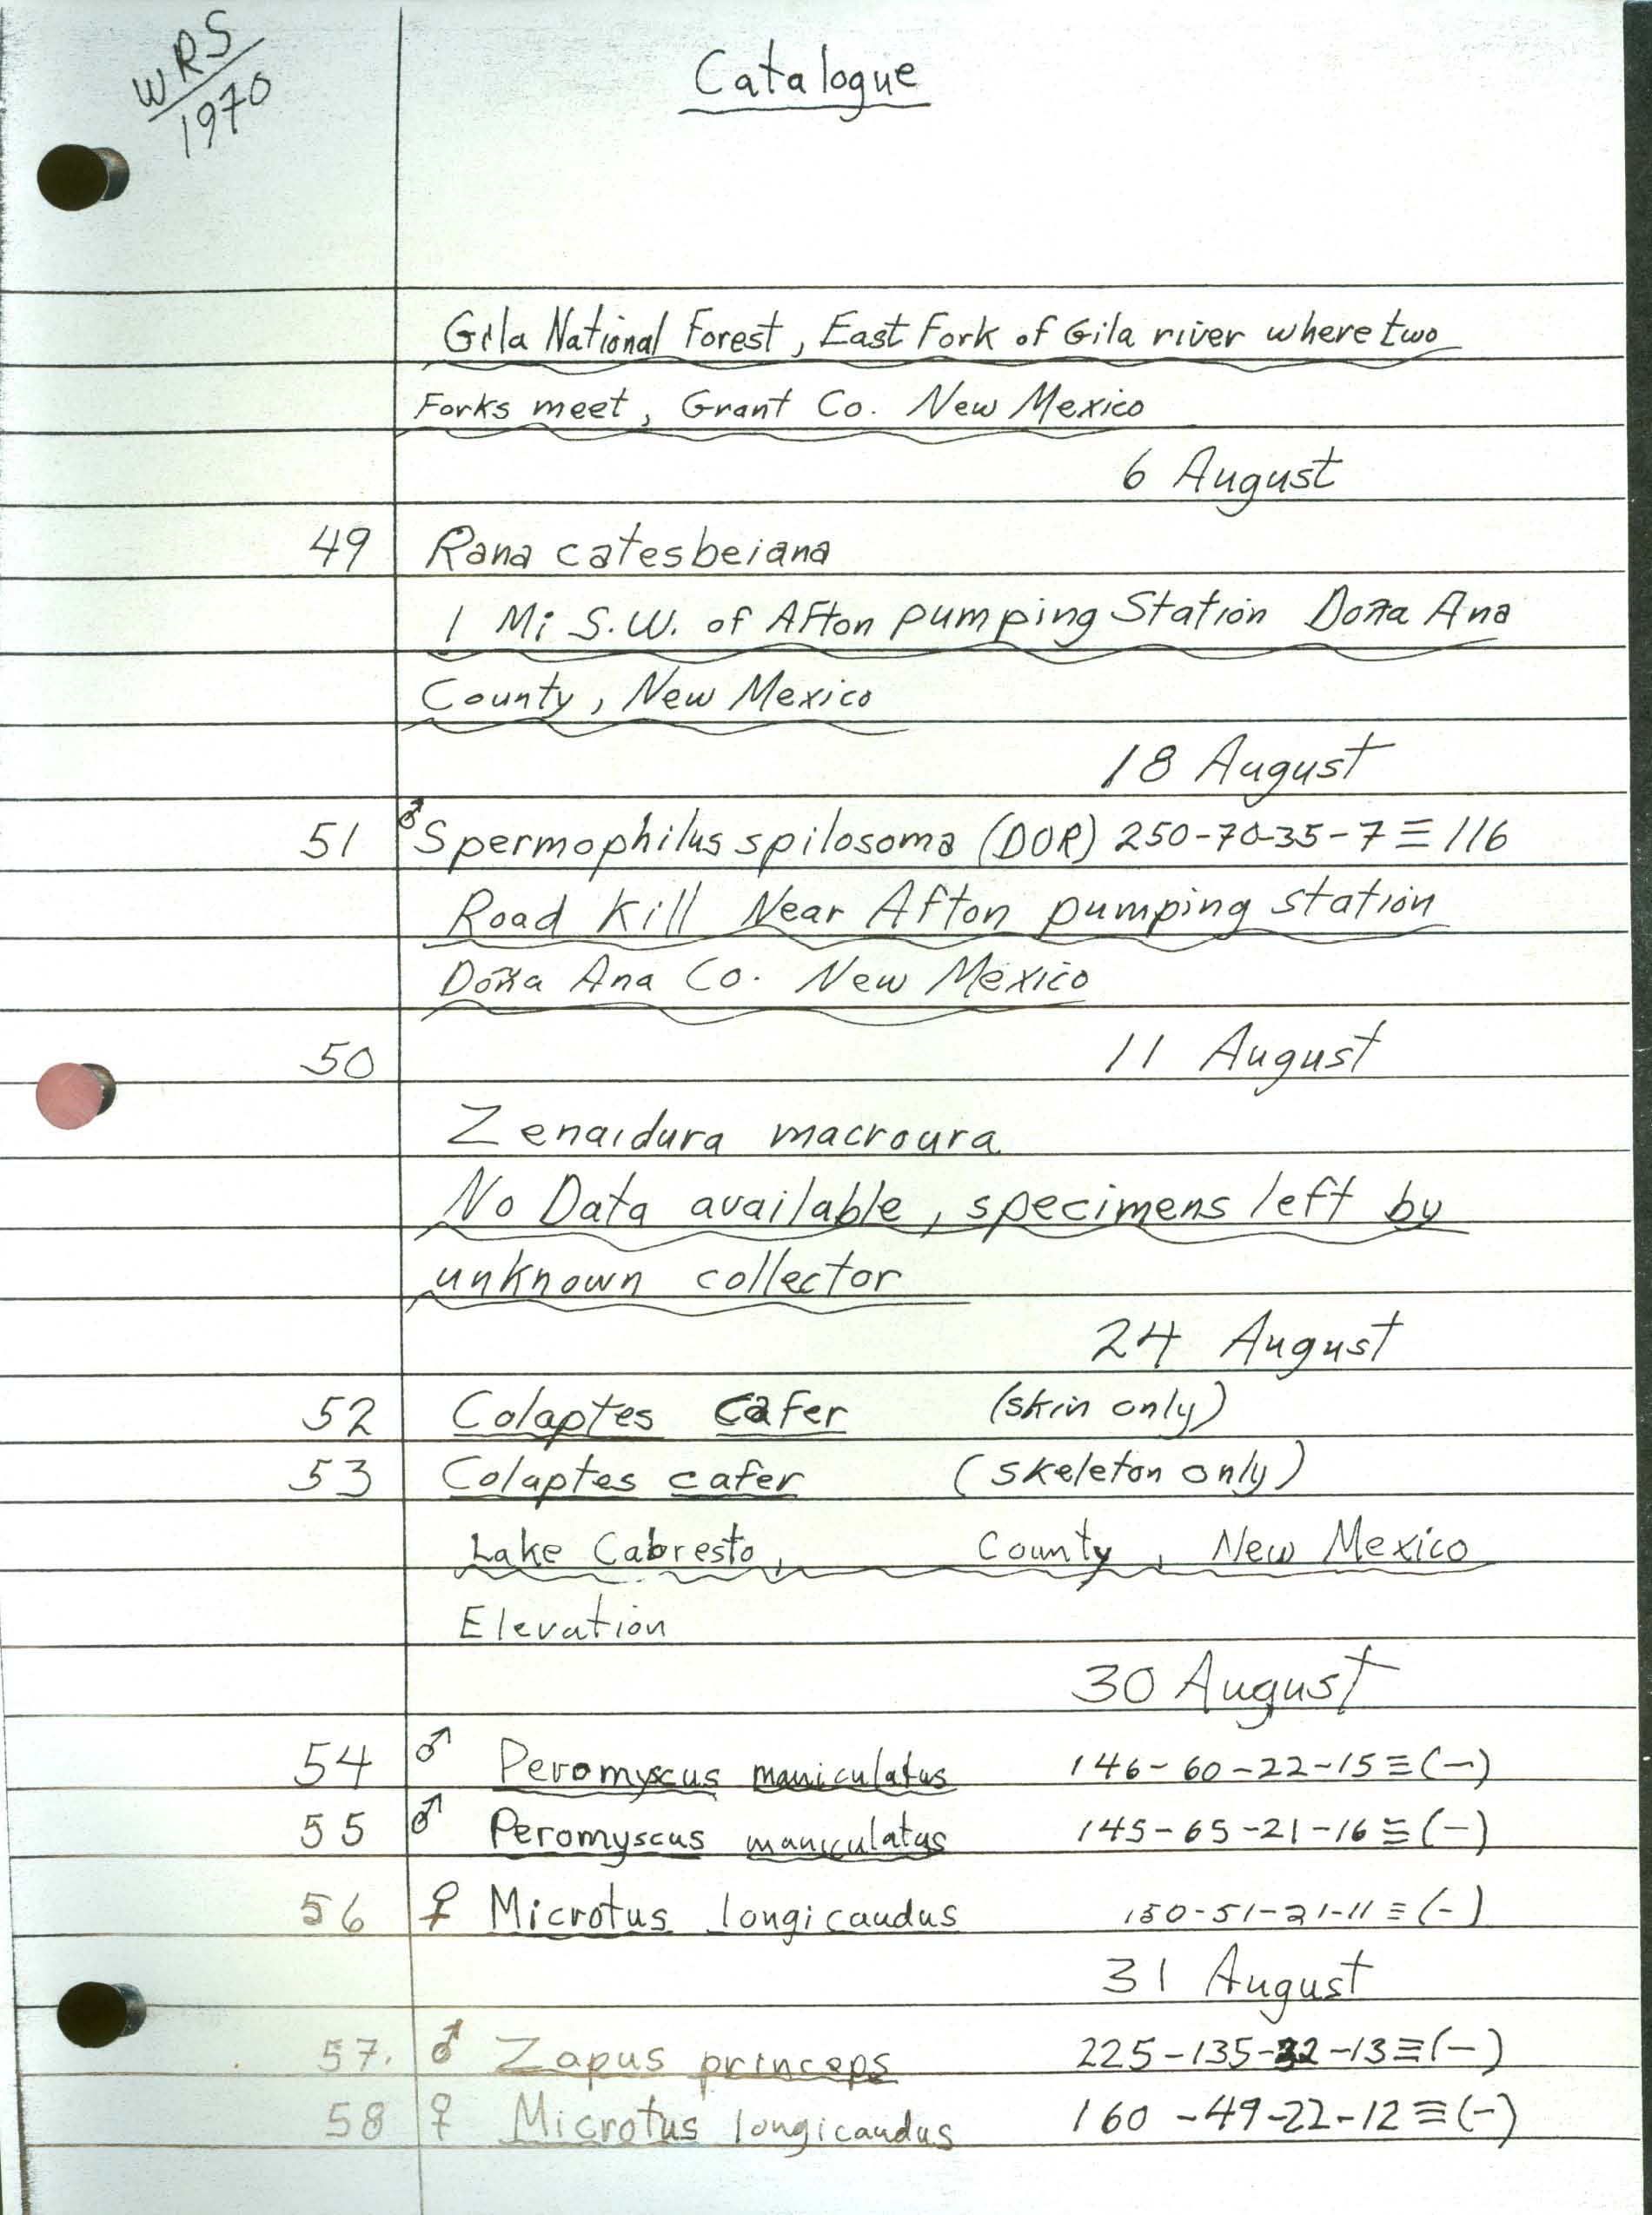 WRS
1970
Catalogue
Gila National Forest, East Fork of Gila river where two
Forks meet, Grant Co. New Mexico
6 August
49 Rana catesbeiana
1 Mi S.W. of Afton pumping Station Doña Ana
County, New Mexico
18 August
51 ♂ Spermophilus spilosoma (DOR) 250-70-35-7≡116
Road Kill Near Afton pumping station
Doña Ana Co. New Mexico
50 11 August
Zenaidura macroura
No Data available, specimens left by
unknown collector
24 August
52 Colaptes cafer (skin only)
53 Colaptes cafer (skeleton only)
Lake Cabresto, County, New Mexico
Elevation
30 August
54 ♂ Peromyscus maniculatus 146-60-22-15≡(-)
55 ♂ Peromyscus maniculatus 145-65-21-16≡(-)
56 ♀ Microtus longicaudus 150-51-21-11≡(-)
31 August
57. ♂ Zapus princeps 225-135-32-13≡(-)
58 ♀ Microtus longicaudus 160-49-22-12≡(-)